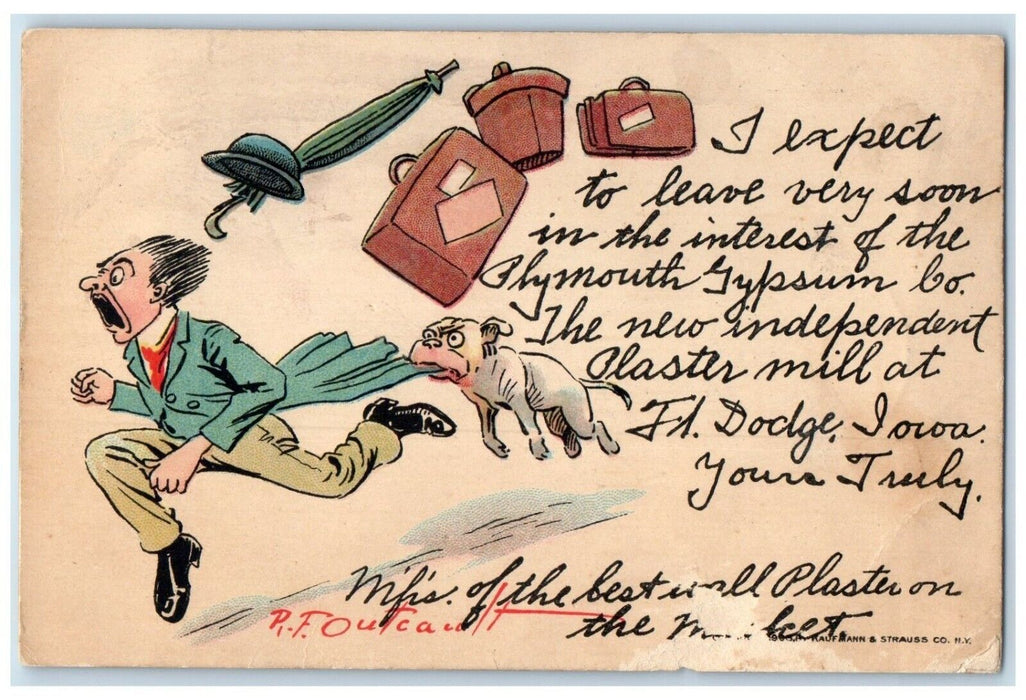 I expect
to leave very soon
in the interest of the
Plymouth Gypsum Co.
The new independent
Plaster mill at
Ft. Dodge, Iowa.
Yours Truly,
Mfrs. of the best wall Plaster on
the Market.
R.F. Outcault
KAUFMANN & STRAUSS CO. N.Y.